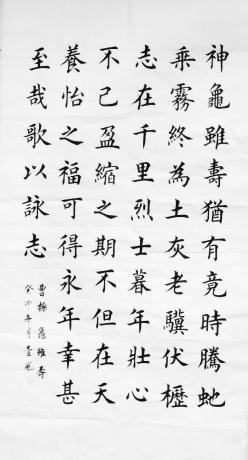 神龜雖壽猶有竟時騰虵
乘霧終為土灰老驥伏櫪
志在千里烈士暮年壯心
不已盈縮之期不但在天
養怡之福可得永年幸甚
至哉歌以詠志
曹操 龜雖壽
癸卯年